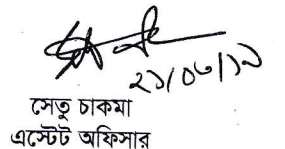 ২১/০৮/১৯
সেতু চাকমা
এস্টেট অফিসার